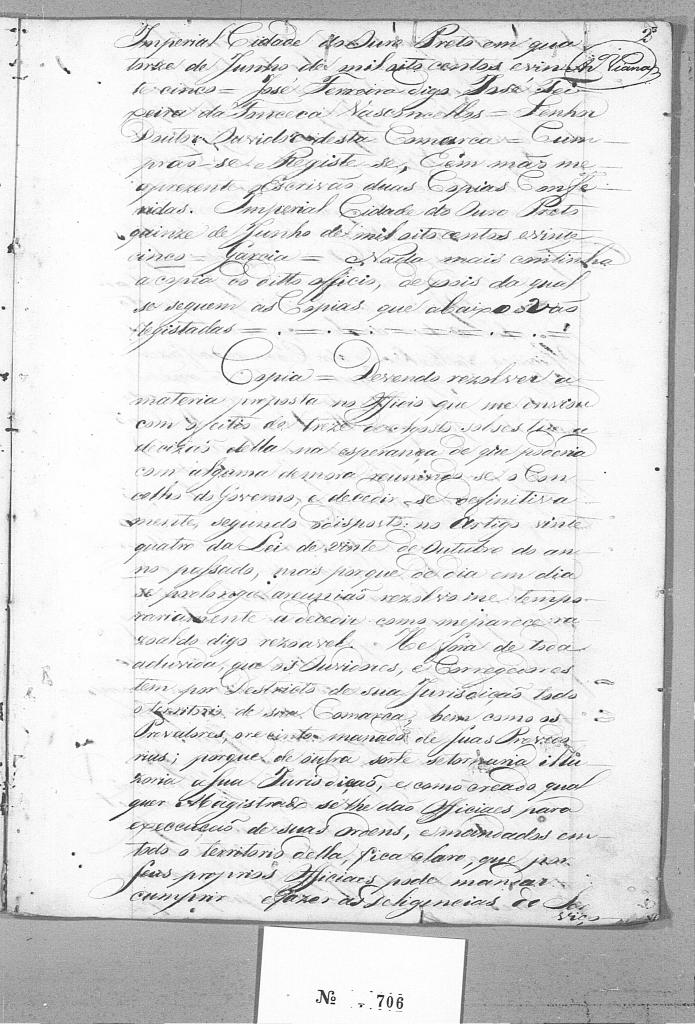 2
Viana
Imperial Cidade do Ouro Preto em qua
torze de Junho de mil oito centos e vin
te cinco = Jose Ferreira digo Jose Tei
xeira da Fonceca Vasconcellos = Senhor
Doutor Ouvidor desta Comarca = Cum
pras-se e Registe se, e em mãz me
aprezente o Escrivão duas Copias Confe
ridas. Imperial Cidade do Ouro Preto
quinze de Junho de mil oito centos e vinte
cinco = Garcia = Nada mais continha
a copia do ditto officio, depois da qual
se seguem as Copias que abaixo vão
registadas =
Copia = Devendo rezolver a
materia proposta no Officio que me enviou
com o feitio de treze de Agosto a
decizão della na esperança de que poderia
com alguma demora reunir se o Con
celho do Governo, e decedir-se definitiva
mente, segundo o disposto no Artigo vinte
quatro da Lei de vinte de Outubro do an
no passado, mas porque de dia em dia
se prolonga a reunião rezolvo me tempo
rariamente a decedir como me parece ra
zoaldo digo rezoavel. He fora de toda
a duvida, que os Ouvidores, e Corregedores
tem por Destricto de sua Jurisdição todo
o territorio de sua Comarca, bem como os
Provedores, o re cinto de suas Provedo
rias; porque de outra sorte se tornaria illu
zoria a sua Jurisdição, e como creado qual
quer Magistrado se lhe dão Officiaes para
execução de suas ordens, e mandados em
todo o territorio della, fica claro, que por
seus proprios Officiaes pode mandar
cumprir e fazer as deligencias de Ser
viço
Nº 706